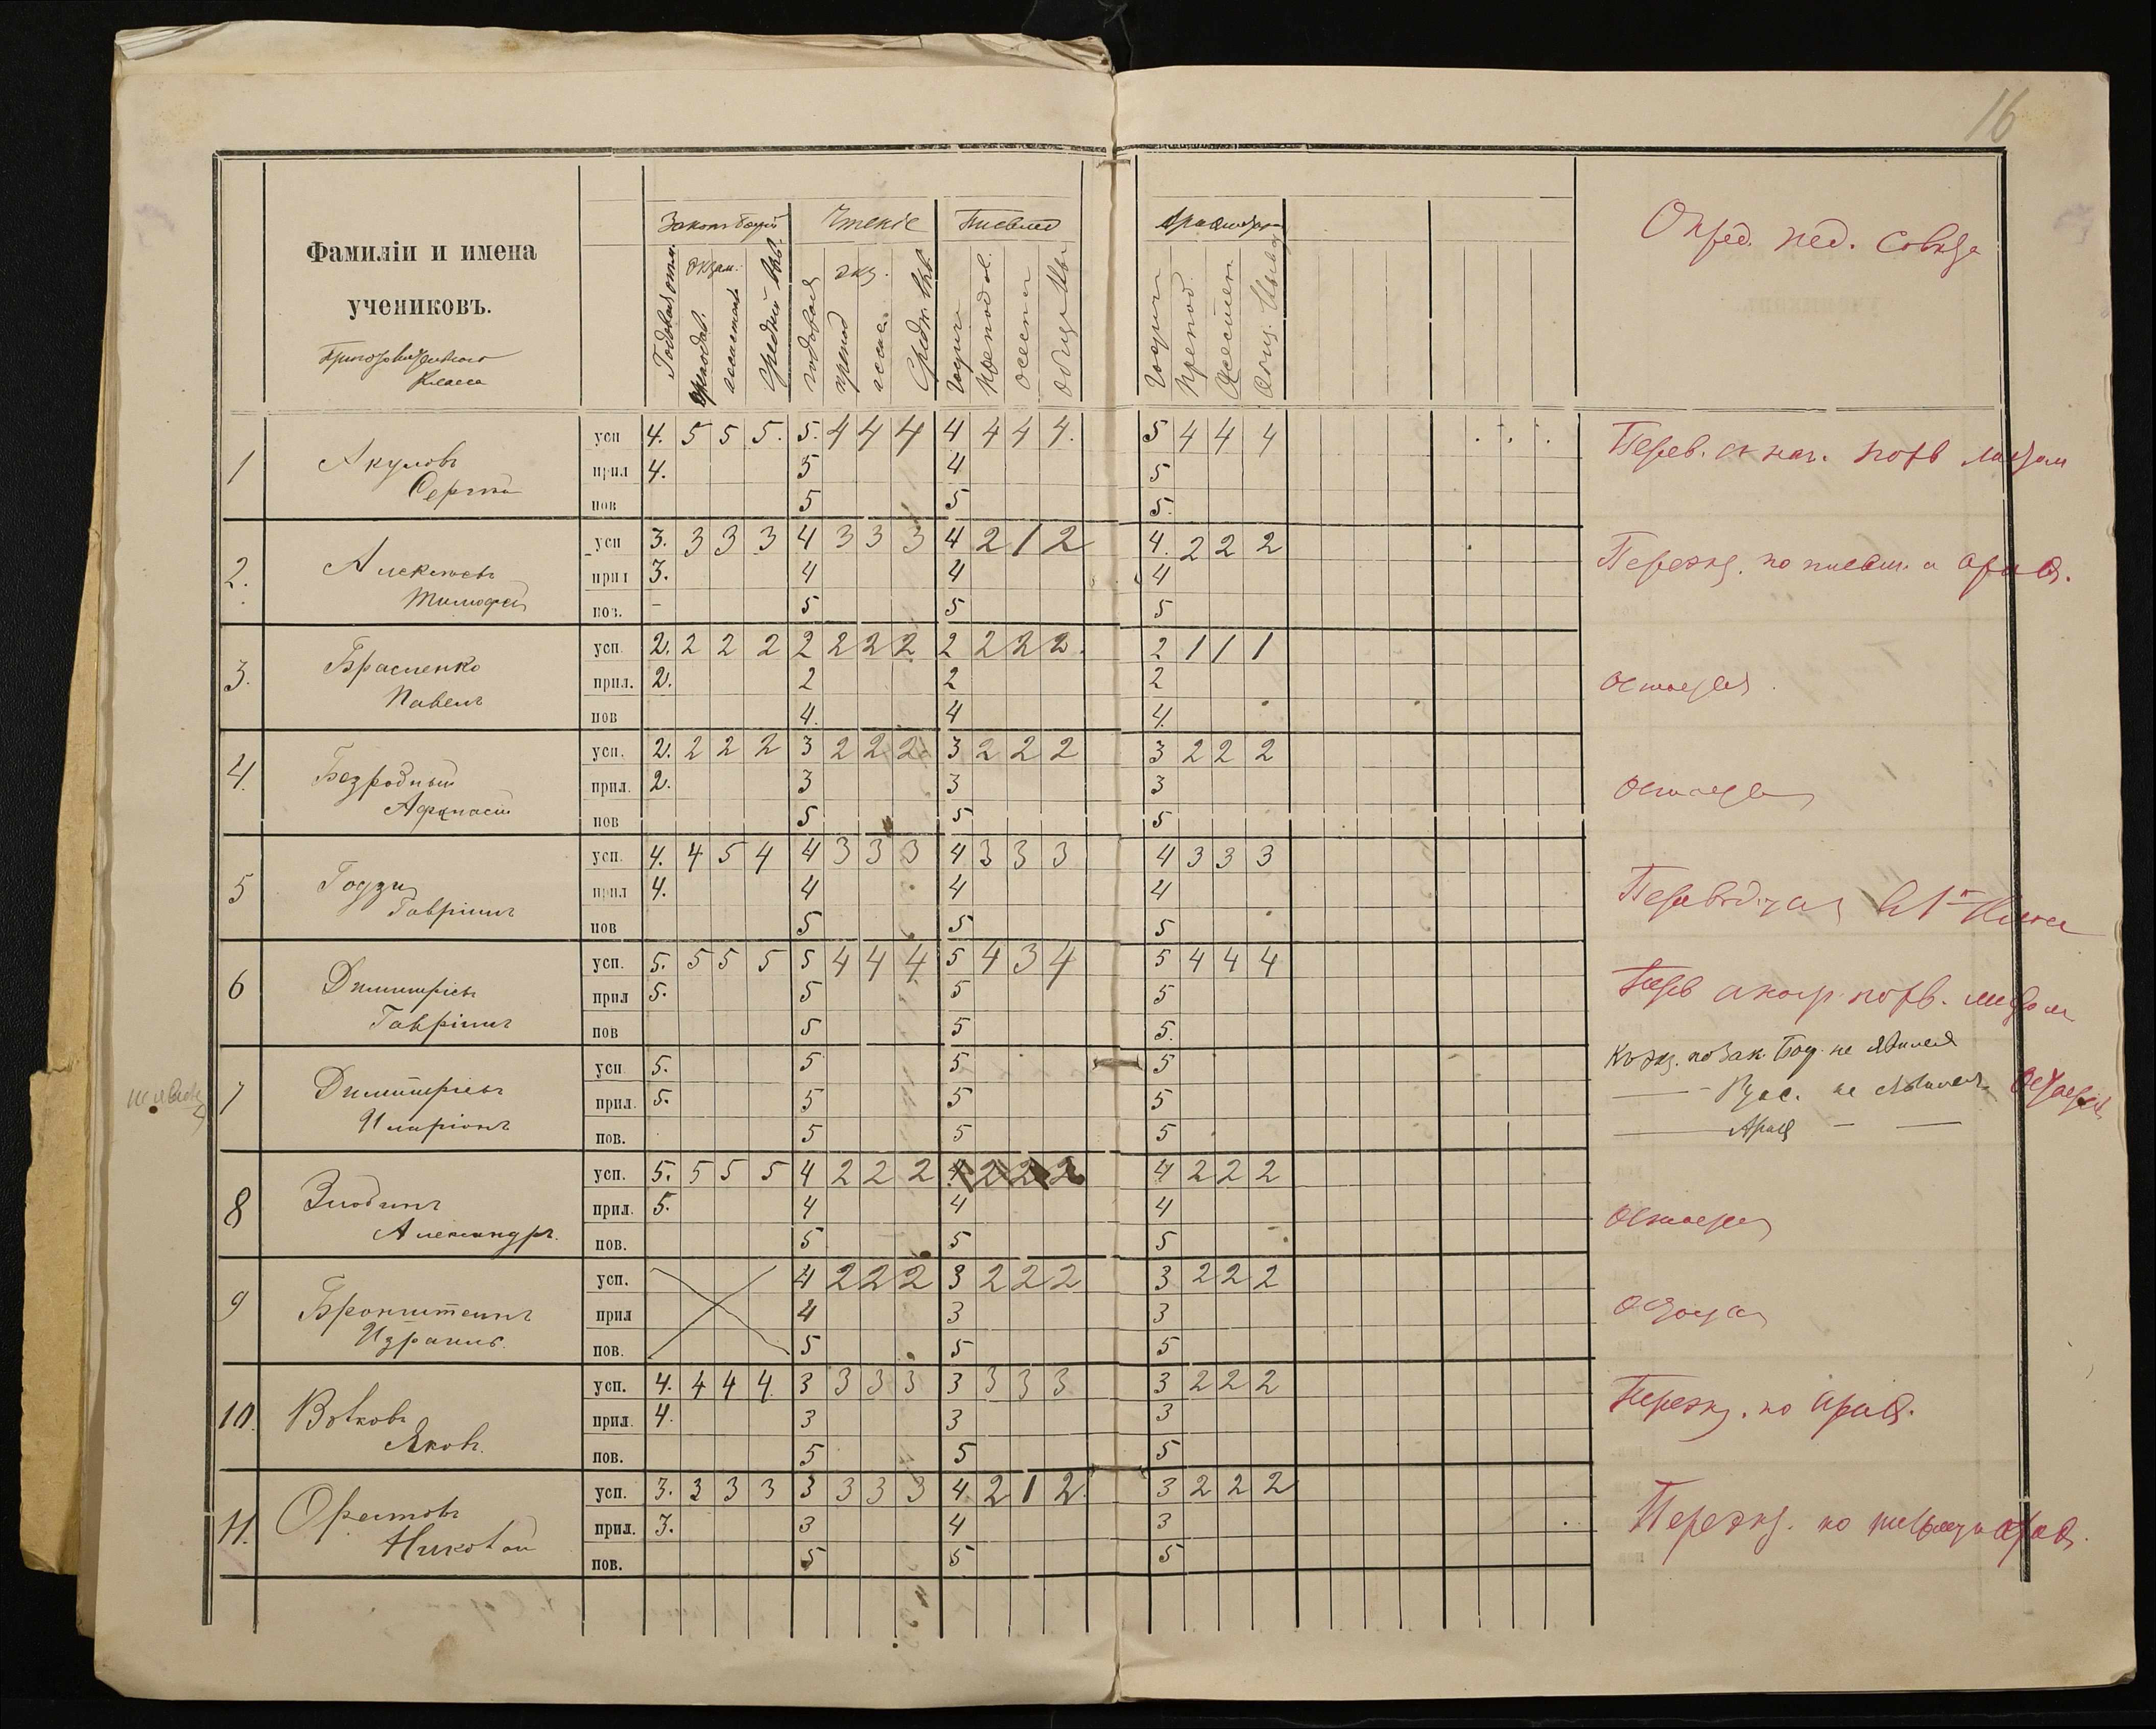 16
Фамиліи и имена
учениковъ.
Приготовительнаго
класса
Законъ Божій
Чтеніе
Письмо
Арѳметика
Опред. пед. Совѣта
экзам.
экз.
Годовая отм.
препод.
ассистент.
Средній выв.
годовая
препод
ассис.
Средн. выв.
Годич
Препод
Ассистен.
Общ. Вывод
1 Акуловъ Сергѣй
усп 4. 5 5 5. 5. 4 4 4 4 4 4 4. 5 4 4 4
прил 4. 5 4 5
пов 5 5 5.
Перев. съ наг. похв листом
2. Алексѣевъ Тимофей
усп 3. 3 3 3 4 3 3 3 4 2 1 2 4. 2 2 2
прил 3. 4 4 4
пов. – 5 5 5
Переэкз. по письм. и ариѳ.
3. Браспенко Павелъ
усп. 2. 2 2 2 2 2 2 2 2 2 2 2. 2 1 1 1
прил. 2. 2 2 2
пов 4. 4 4.
остается
4. Безродный Афанасій
усп. 2. 2 2 2 3 2 2 2 3 2 2 2 3 2 2 2
прил. 2. 3 3 3
пов 5 5 5
остается
5 Годзи Гавріилъ
усп. 4. 4 5 4 4 3 3 3 4 3 3 3 4 3 3 3
прил 4. 4 4 4
пов 5 5 5
Переводится в 1й класс
6 Димитріевъ Гавріилъ
усп. 5. 5 5 5 5 4 4 4 5 4 3 4 5 4 4 4
прил 5. 5 5 5
пов 5 5 5.
Перев похв. листом
7 Димитріевъ Иларіонъ
усп. 5. 5 5 5
прил. 5. 5 5 5
пов. 5 5 5
Къ экз. по Зак. Бож. не явился
— Рус. не явился
— Ариѳ — —
Остается
8 Злобинъ Александръ.
усп. 5. 5 5 5 4 2 2 2 4 2 2 2 4 2 2 2
прил. 5. 4 4 4
пов. 5 5 5
остается
9 Бронштейнъ Израиль.
усп. 4 2 2 2 3 2 2 2 3 2 2 2
прил 4 3 3
пов. 5 5 5
остается
10. Волковъ Яковъ.
усп. 4. 4 4 4. 3 3 3 3 3 3 3 3 3 2 2 2
прил. 4. 3 3 3
пов. 5 5 5
Переэкз. по ариѳ.
11. Орестовъ Николай
усп. 3. 3 3 3 3 3 3 3 4. 2 1 2. 3 2 2 2
прил. 3. 3 4 3
пов. 5 5 5
Переэкз. по письму и ариѳ.